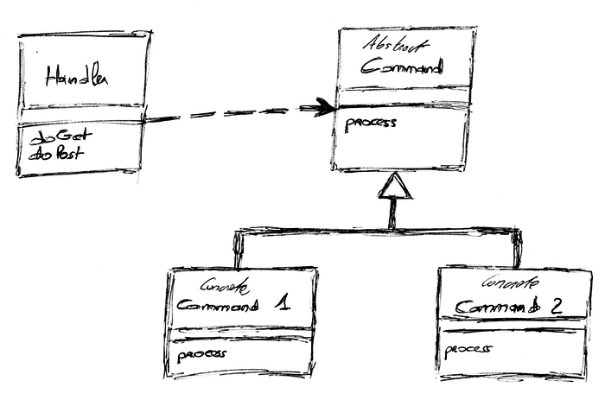 Handler
doGet
doPost
Abstract
Command
process
Concrete
Command 1
process
Concrete
Command 2
process